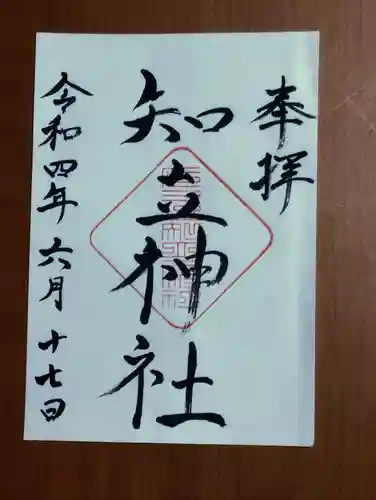 奉拝
知立神社
令和四年 六月 十七日